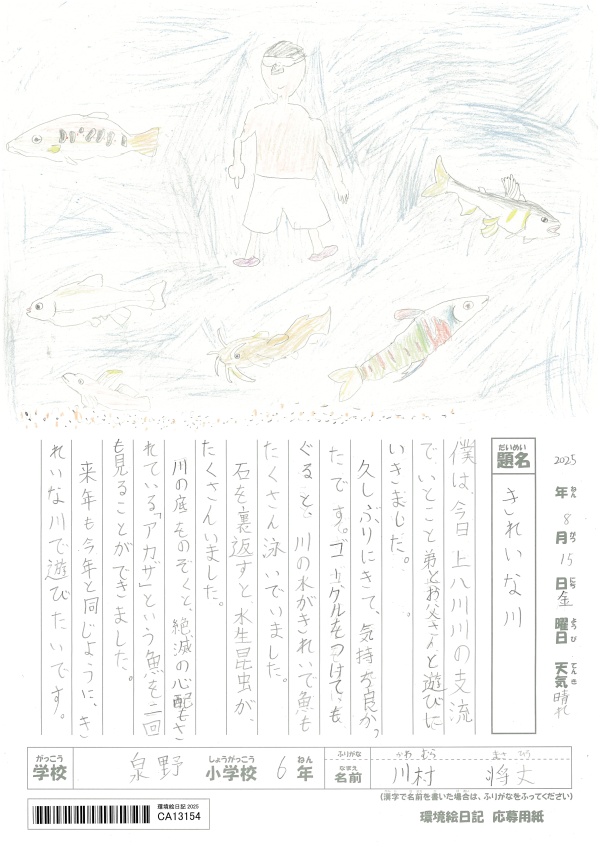 2025年8月15日金曜日 天気晴れ
ねん がつ にち ようび てんき
だいめい
題名 きれいな川
僕は、今日上八川川の支流
でいとこと弟とお父さんと遊びに
いきました。
久しぶりにきて、気持ち良かっ
たです。ゴーグルをつけて、も
ぐると、川の水がきれいで魚も
たくさん泳いでいました。
石を裏返すと水生昆虫が、
たくさんいました。
川の底をのぞくと、絶滅の心配もさ
れている「アカザ」という魚を二回
も見ることができました。
来年も今年と同じように、き
れいな川で遊びたいです。
がっこう しょうがっこう ねん
学校 泉野 小学校 6年
ふりがな かわむら まさ
なまえ
名前 川村 将丈
(漢字で名前を書いた場合は、ふりがなをふってください)
環境絵日記 2025
CA13154
環境絵日記 応募用紙